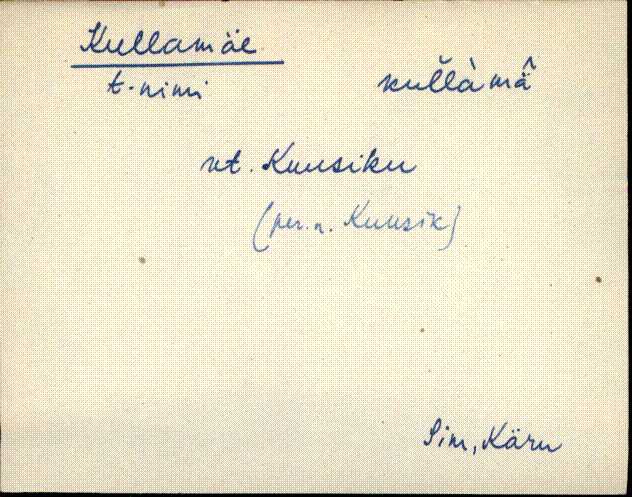 Kullamäe
t-nimi kul̆l̀àmä̂
vt. Kuusiku
(per.n. Kuusik)
Sim, Käru